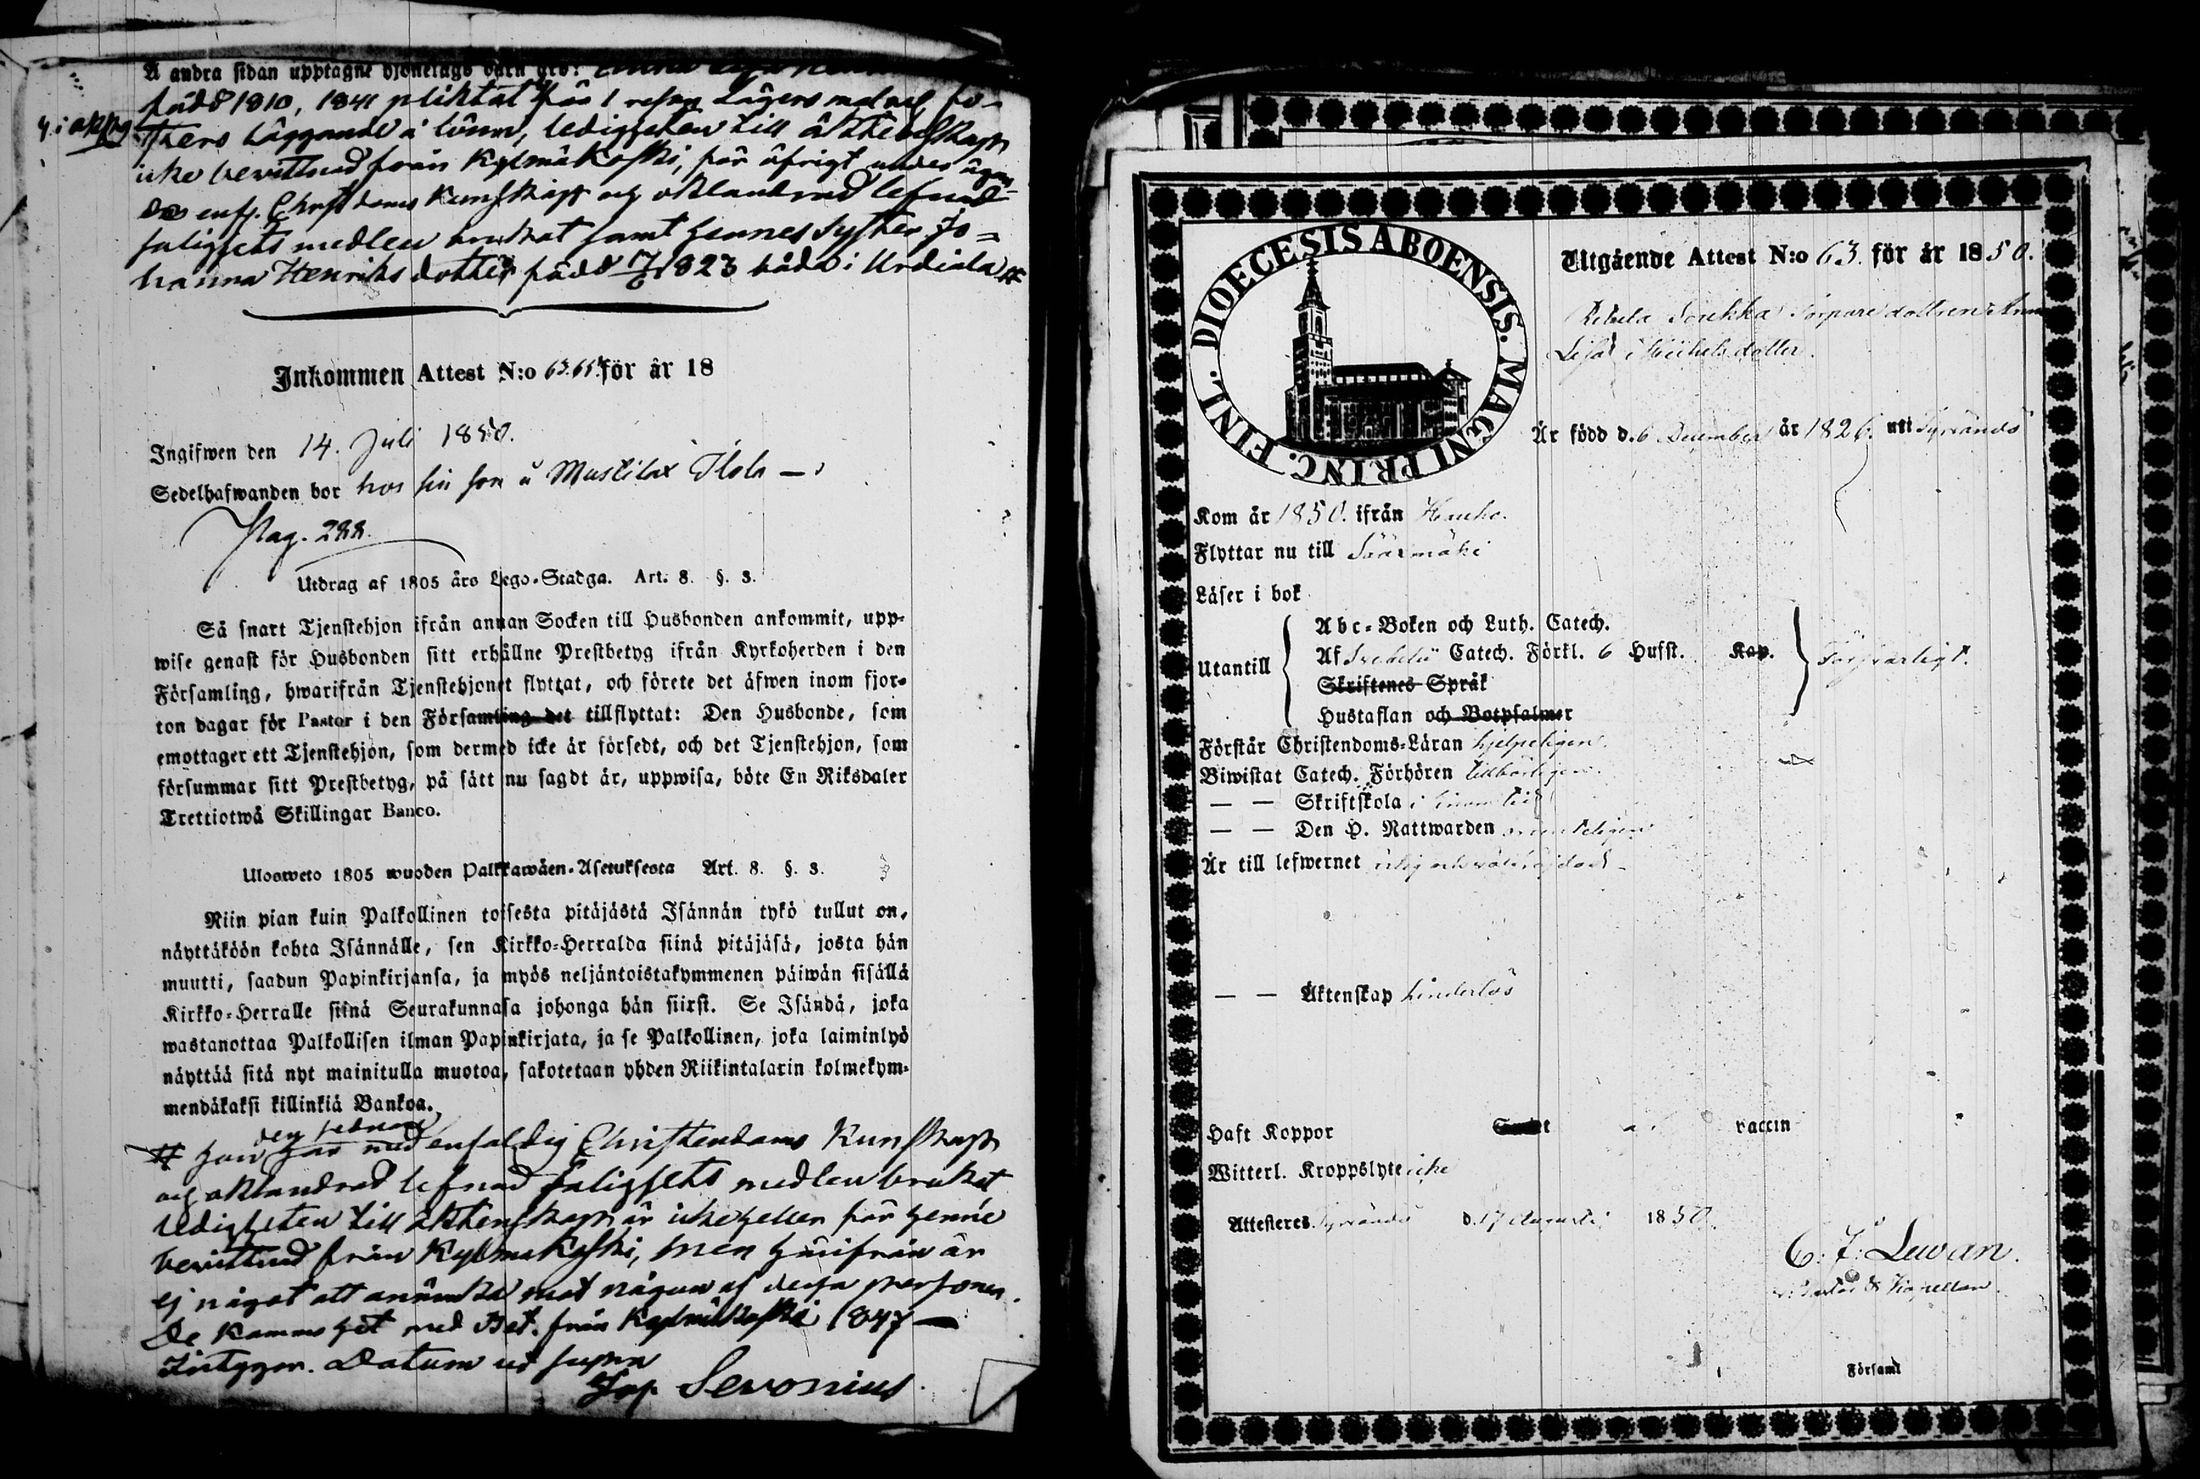 Å andra sidan upptagne
född 1810, 1841 pliktat för 1 resan Lägersmål och fo-
sters läggande å lönn, ledigheten till äktenskap
icke bevittnad från Kylmäkoski, för öfrigt under
enf. Christdoms Kunskap och oklandrad lefnad
salighets medlen brukat samt hennes syster Jo=
hanna Henriksdotter född 1823 båda i Urdiala #
Inkommen Attest N:o 63.65. för år 18
Ingifwen den 14. Juli 1850.
Sedelhafwanden bor hos sin son å Mustila Ilola
Pag. 288.
Utdrag af 1805 års Lego-Stadga. Art. 8. §. 3.
Så snart Tjenstehjon ifrån annan Socken till Husbonden ankommit, upp-
wise genast för Husbonden sitt erhållne Prestbetyg ifrån Kyrkoherden i den
Församling, hwarifrån Tjenstehjonet flyttat, och förete det äfwen inom fjor-
ton dagar för Pastor i den Församling det tillflyttat: Den Husbonde, som
emottager ett Tjenstehjon, som dermed icke är försedt, och det Tjenstehjon, som
försummar sitt Prestbetyg, på sätt nu sagdt är, uppwisa, böte En Riksdaler
Trettiotwå Skillingar Banco.
Ulosweto 1805 wuoden Palkkawäen-Asetuksesta Art. 8. §. 3.
Niin pian kuin Palkollinen toisesta pitäjästä Isännän tykö tullut on,
näyttäköön kohta Isännälle, sen Kirkko-Herralda siinä pitäjäsä, josta hän
muutti, saadun Papinkirjansa, ja myös neljäntoistakymmenen päiwän sisällä
Kirkko-Herralle siinä Seurakunnasa johonga hän siirst. Se Isändä, joka
wastanottaa Palkollisen ilman Papinkirjata, ja se Palkollinen, joka laiminlyö
näyttää sitä nyt mainitulla muotoa, sakotetaan yhden Riikintalarin kolmekym-
mendäkaksi killinkiä Bankoa.
den sednare
# hon har med enfaldig Christendoms Kunskap
och oklandrad lefnad Salighets medlen brukat
ledigheten till äktenskap är icke heller för henne
bevittnad från Kylmäkoski, men härifrån är
ej något att anmärka mot någon af dessa personer.
De kommo hit med Bet. från Kylmäkoski 1847 —
Intygar. Datum ut supra
Jos. Sevonius.
DIOECESIS ABOENSIS. MAGNI PRINC. FINL.
Utgående Attest N:o 63. för år 1850.
Torpare dottren Anna
Lisa Michelsdotter.
Är född d. 6 December år 1826. uti Tyrvändö
Kom år 1850. ifrån Hauho.
Flyttar nu till Sääxmäki
Läser i bok
Utantill
Abc-Boken och Luth. Catech.
Af Svebelii Catech. Förkl. 6 Hufst. Kap.
Skriftenes Språk
Hustaflan och Botpsalmer
Försvarligt.
Förstår Christendoms-Läran hjelpeligen.
Biwistat Catech. Förhören tillbörligen.
— — Skriftskola i sinom tid
— — Den H. Nattwarden
Är till lefwernet ärlig och
— — Äktenskap hinderlös
Haft Koppor vaccin
Witterl. Kroppslyte icke
Attesteres Tyrvändö d. 17 Augusti 1850.
C. J. Lewan.
v. Pastor & Kapellan.
Församl